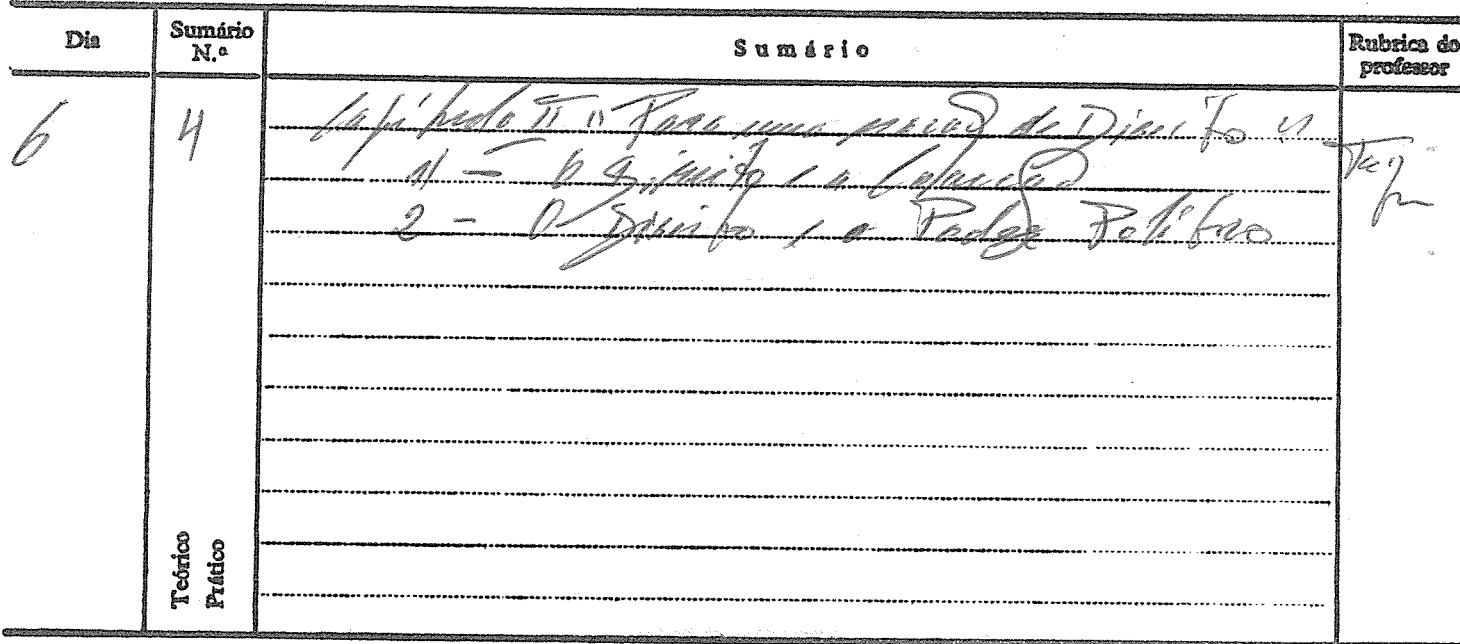 Dia Sumário N.º Sumário Rubrica do professor
6 4 Capítulo II "Para uma noção de Direito"
1 - O Direito e a Coacção
2 - O Direito e o Poder Político
Teórico
Prático